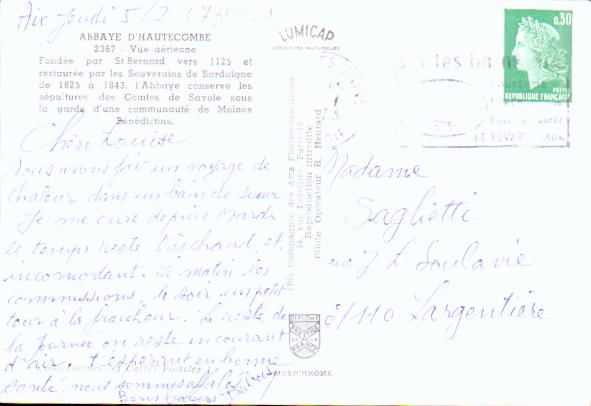 Aix Jeudi 5/7
ABBAYE D'HAUTECOMBE
2367 - Vue aérienne
Fondée par St Bernard vers 1125 et
restaurée par les Souverains de Sardaigne
de 1825 à 1843, l'Abbaye conserve les
sépultures des Comtes de Savoie sous
la garde d'une communauté de Moines
Bénédictins.
Chère Louise
Nous avons fait un voyage de
chaleur dans un bain de sueur
Je me cure depuis Mardi
le temps reste très chaud, et
incomodant. Le matin les
commissions, le soir un petit
tour à la fraicheur. Le reste de
la Journée on reste en courant
d'air. T'espérant en bonne
santé, nous sommes
Bons baisers
LUMICAP
COULEURS NATURELLES
Compagnie des Arts Photomécaniques
44, rue Letellier, Paris-15
Reproduction interdite
Pilote Opérateur R. Henrard
MEXICHROME
0,30
POSTES
REPUBLIQUE FRANÇAISE
LE REVARD
Madame
Saglietti
rue J. L. Soulavie
07110 Largentière